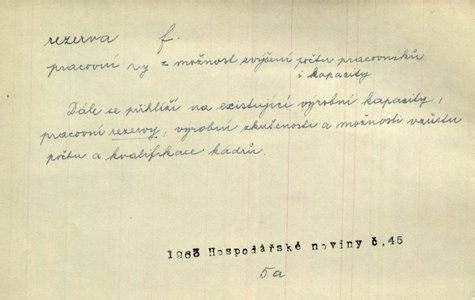 rezerva f.
pracovní r-y = možnost zvýšení počtu pracovníků
i kapacity
Dále se přihlíží na existující výrobní kapacity,
pracovní rezervy, výrobní zkušenosti a možnosti vzrůstu
počtu a kvalifikace kádrů.
1963 Hospodářské noviny č.45
5a